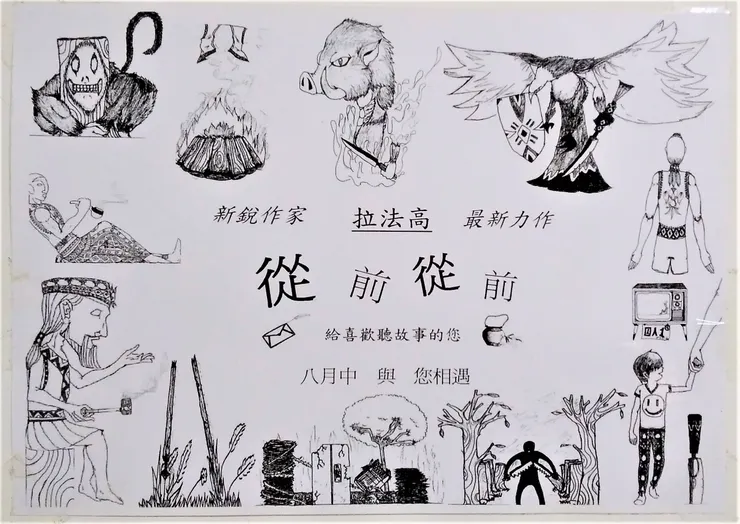 新銳作家 拉法高 最新力作
從前從前
給喜歡聽故事的您
八月中 與 您相遇